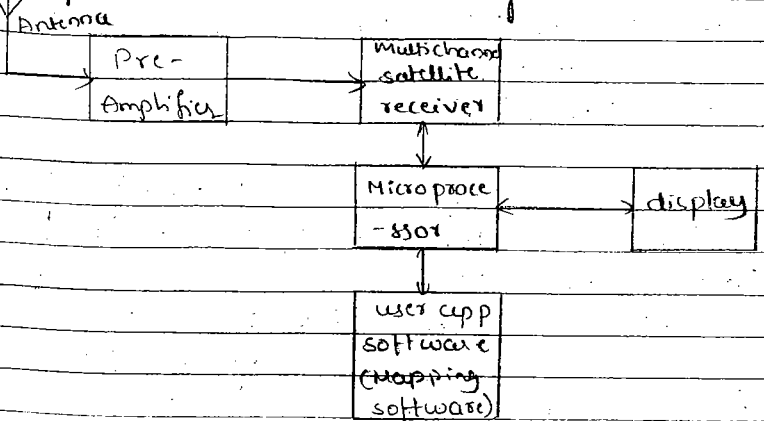 Antenna
Pre-
Amplifier
Multichannel
satellite
receiver
Microproce
-ssor
display
user app
software
(Mapping
software)